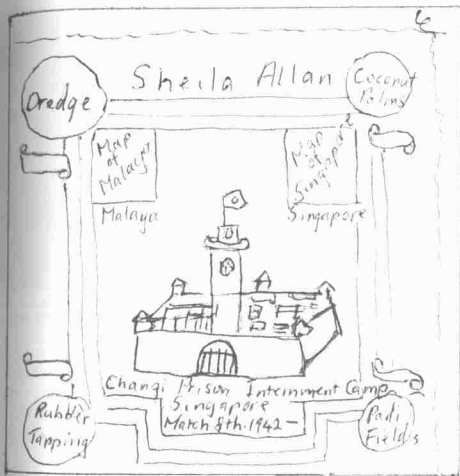 6
Sheila Allan
Dredge
Coconut
Palms
Map
of
Malaya
Map
of
Singapore
Malaya
Singapore
Changi Prison Internment Camp
Singapore
March 8th. 1942 -
Rubber
Tapping
Padi
Fields